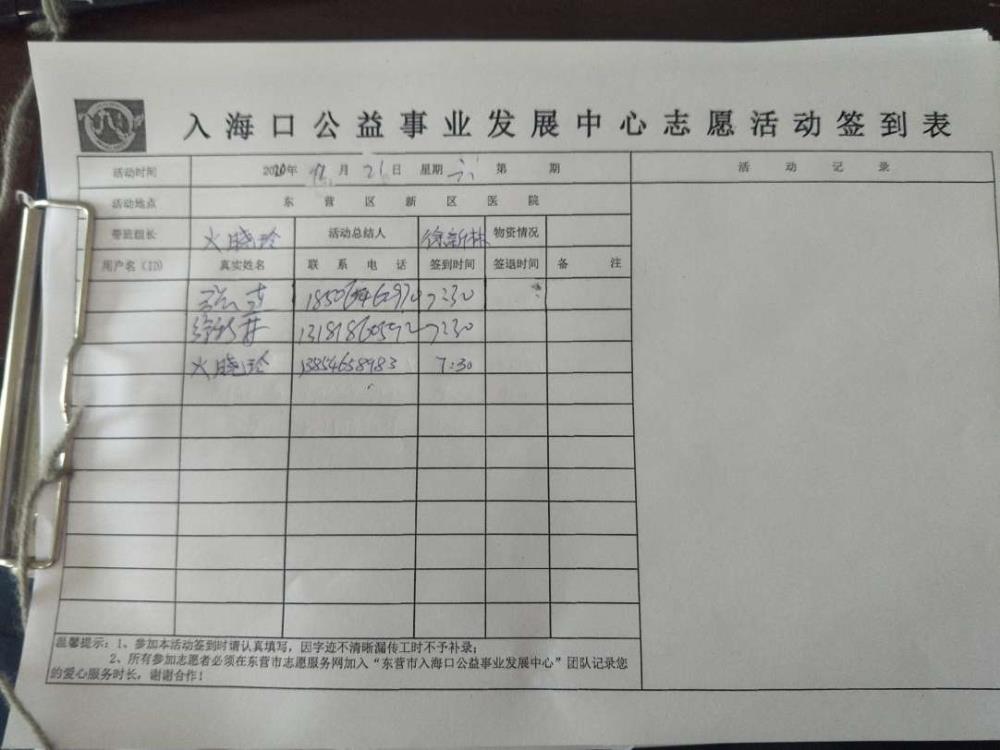 入海口公益事业发展中心志愿活动签到表
活动时间 2020年 12月 26日 星期六 第 期 活动记录
活动地点 东营区新区医院
带班组长 火晓玲 活动总结人 徐新林 物资情况
用户名(ID) 真实姓名 联系电话 签到时间 签退时间 备注
7:30
7:30
火晓玲 13854658983 7:30
温馨提示:1、参加本活动签到时请认真填写,因字迹不清晰漏传工时不予补录;
2、所有参加志愿者必须在东营市志愿服务网加入“东营市入海口公益事业发展中心”团队记录您
的爱心服务时长,谢谢合作!